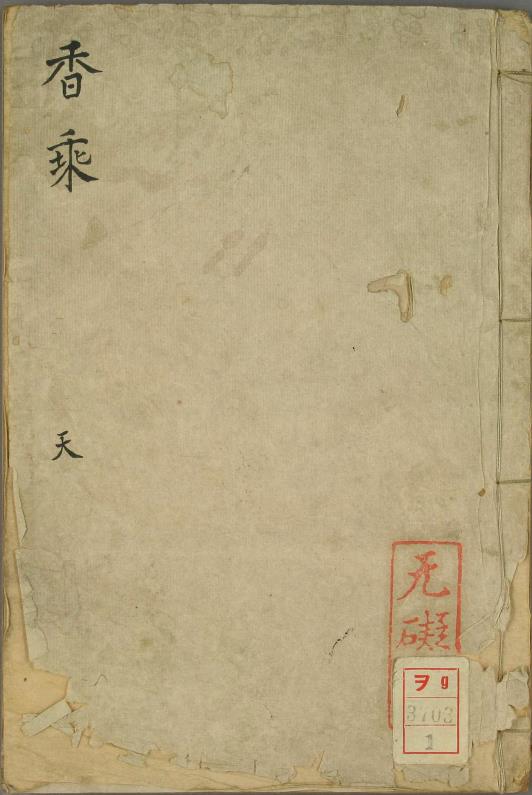 香乘
天
无礙
ヲ9
3703
1